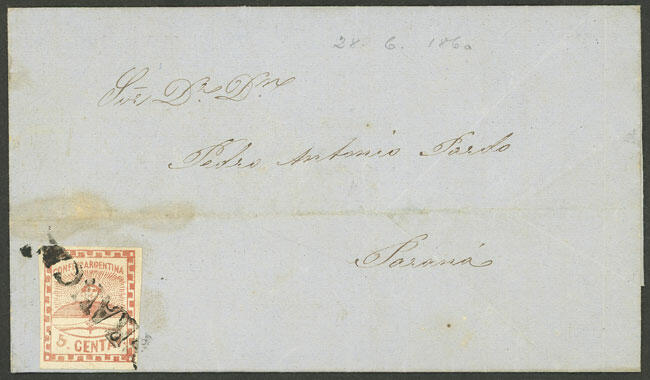 28. 6. 1860
Sor Dr. Dn
Pedro Antonio Pardo
Paraná
CONFON ARGENTINA
5. CENTAV